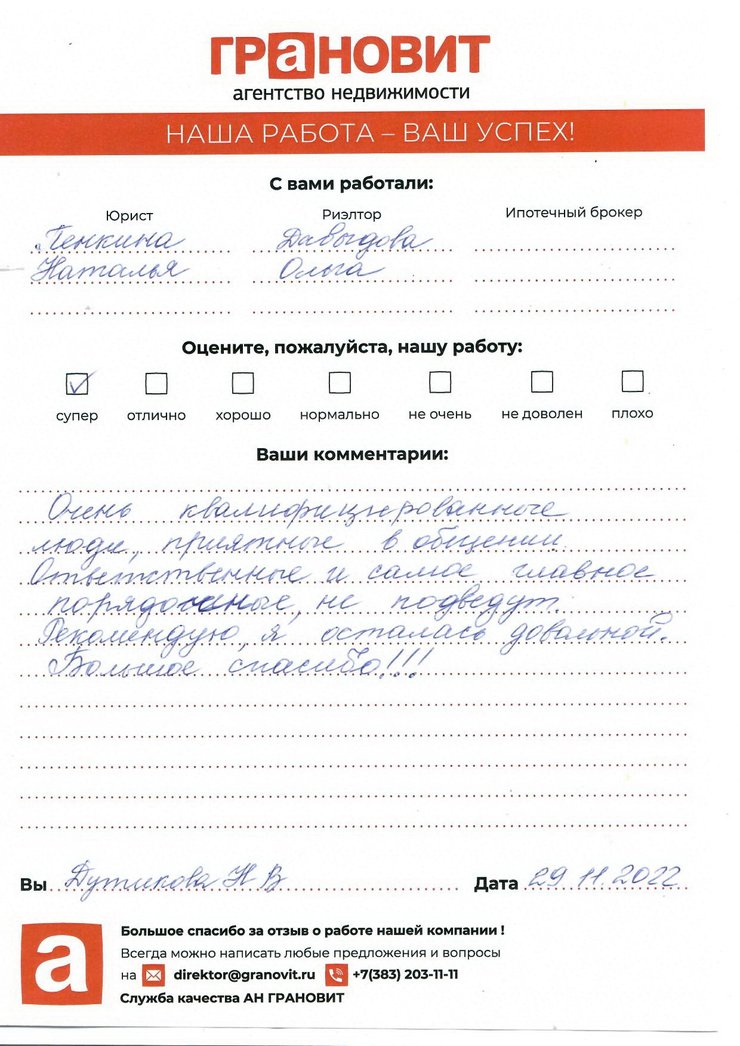 ГРаНОВИТ
агентство недвижимости
НАША РАБОТА – ВАШ УСПЕХ!
С вами работали:
Юрист Риэлтор Ипотечный брокер
Пенкина Давыдова
Наталья Ольга
Оцените, пожалуйста, нашу работу:
супер отлично хорошо нормально не очень не доволен плохо
Ваши комментарии:
Очень квалифицированные
люди, приятные в общении.
Ответственные и самое главное
порядочные, не подведут.
Рекомендую, я осталась довольной.
Большое спасибо!!!
Вы Дутикова Н В Дата 29.11.2022
а Большое спасибо за отзыв о работе нашей компании !
Всегда можно написать любые предложения и вопросы
на direktor@granovit.ru +7(383) 203-11-11
Служба качества АН ГРАНОВИТ